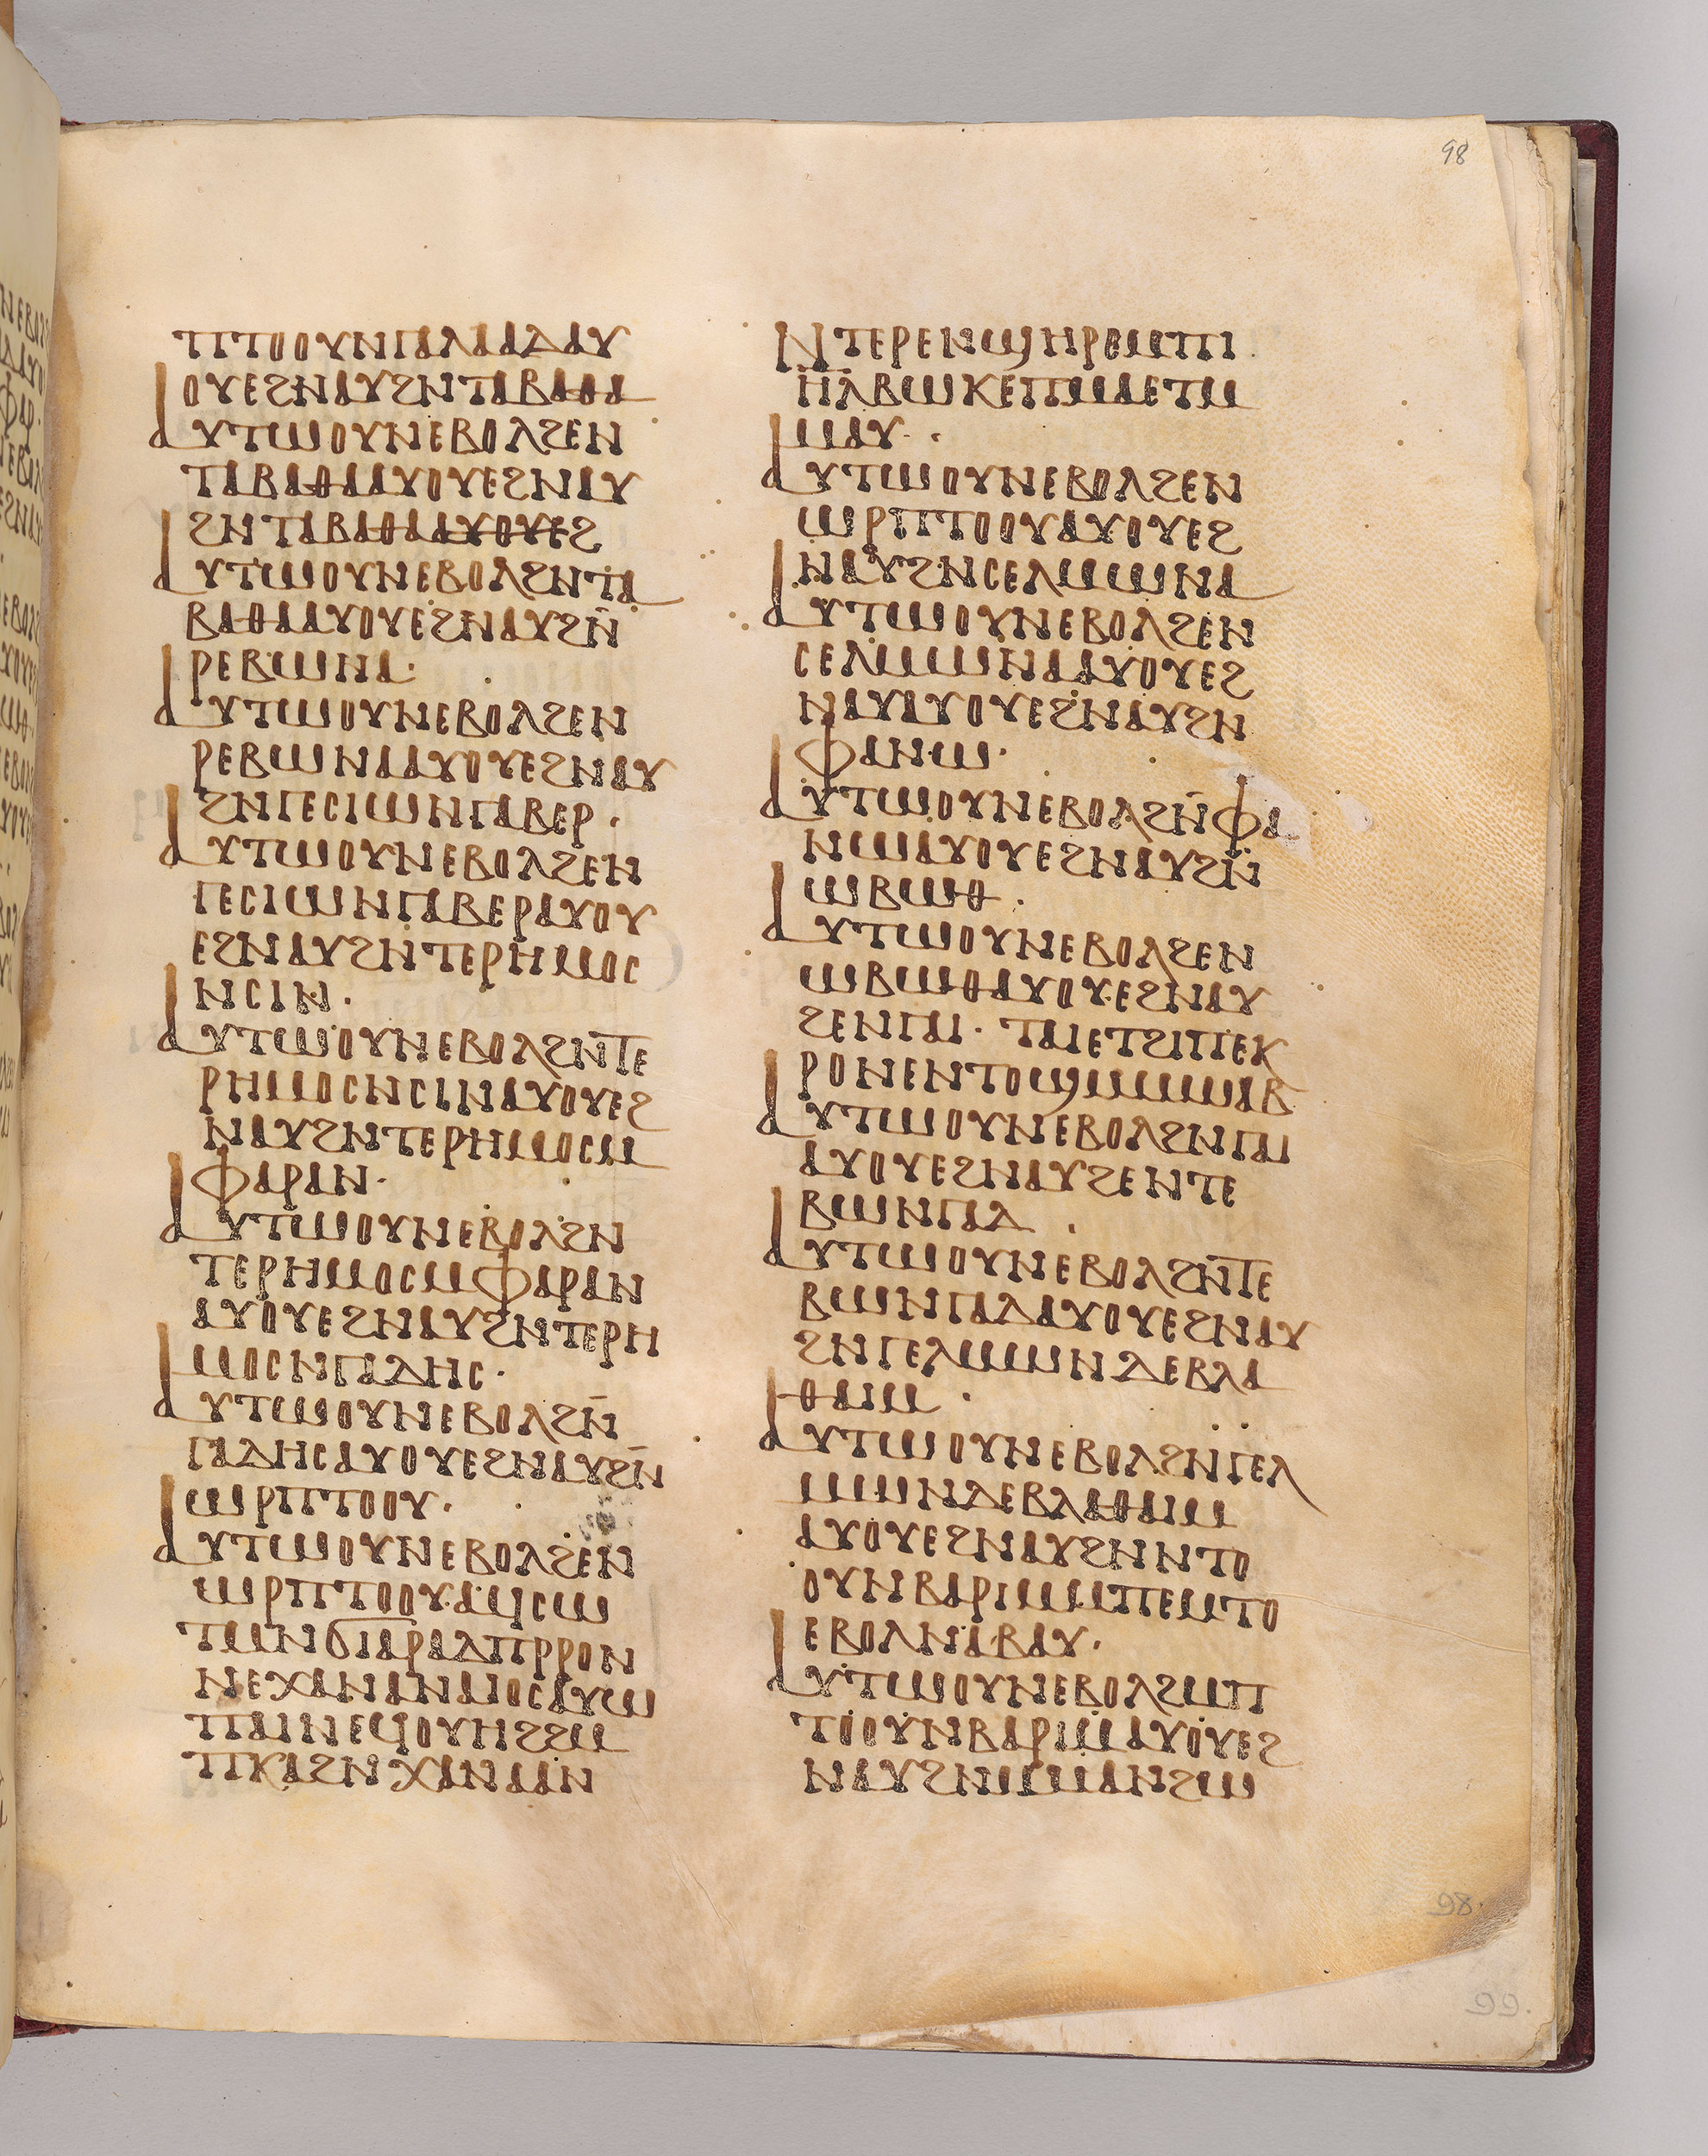 98
ⲡⲧⲟⲟⲩⲛⲅⲁⲗⲁⲁⲇⲁⲩ
ⲟⲩⲉϩⲛⲁⲩϩⲛⲧⲁⲃⲁⲑⲁ
ⲁⲩⲧⲱⲟⲩⲛⲉⲃⲟⲗϩⲉⲛ
ⲧⲁⲃⲁⲑⲁⲁⲩⲟⲩⲉϩⲛⲁⲩ
ϩⲛⲧⲁⲃⲁⲑⲁⲁⲩⲟⲩⲉϩ
ⲁⲩⲧⲱⲟⲩⲛⲉⲃⲟⲗϩⲛⲧⲁ
ⲃⲁⲑⲁⲁⲩⲟⲩⲉϩⲛⲁⲩϩⲛ̄
ⲣⲉⲃⲱⲛⲁ·
ⲁⲩⲧⲱⲟⲩⲛⲉⲃⲟⲗϩⲉⲛ
ⲣⲉⲃⲱⲛⲁⲁⲩⲟⲩⲉϩⲛⲁⲩ
ϩⲛⲅⲉⲥⲓⲱⲛⲅⲁⲃⲉⲣ·
ⲁⲩⲧⲱⲟⲩⲛⲉⲃⲟⲗϩⲉⲛ
ⲅⲉⲥⲓⲱⲛⲅⲁⲃⲉⲣⲁⲩⲟⲩ
ⲉϩⲛⲁⲩϩⲛⲧⲉⲣⲏⲙⲟⲥ
ⲛⲥⲓⲛ·
ⲁⲩⲧⲱⲟⲩⲛⲉⲃⲟⲗϩⲛⲧⲉ
ⲣⲏⲙⲟⲥⲛⲥⲓⲛⲁⲩⲟⲩⲉϩ
ⲛⲁⲩϩⲛⲧⲉⲣⲏⲙⲟⲥⲙ
ⲫⲁⲣⲁⲛ·
ⲁⲩⲧⲱⲟⲩⲛⲉⲃⲟⲗϩⲛ
ⲧⲉⲣⲏⲙⲟⲥⲙⲫⲁⲣⲁⲛ
ⲁⲩⲟⲩⲉϩⲛⲁⲩϩⲛⲧⲉⲣⲏ
ⲙⲟⲥⲛⲅⲁⲇⲏⲥ·
ⲁⲩⲧⲱⲟⲩⲛⲉⲃⲟⲗϩⲛ̄
ⲅⲁⲇⲏⲥⲁⲩⲟⲩⲉϩⲛⲁⲩϩⲛ̄
ⲱⲣⲡⲧⲟⲟⲩ·
ⲁⲩⲧⲱⲟⲩⲛⲉⲃⲟⲗϩⲉⲛ
ⲱⲣⲡⲧⲟⲟⲩ·ⲁϥⲥⲱ
ⲧⲙⲛϭⲓⲁⲣⲁⲇⲡⲣⲣⲟⲛ
ⲛⲉⲭⲁⲛⲁⲛⲁⲓⲟⲥⲁⲩⲱ
ⲡⲁⲓⲛⲉϥⲟⲩⲏϩϩⲙ
ⲡⲕⲁϩⲛⲭⲁⲛⲁⲁⲛ
ⲛⲧⲉⲣⲉⲛϣⲏⲣⲉⲙⲡⲓ
ⲏ̄ⲗⲃⲱⲕⲉⲡⲙⲁⲉⲧⲙ
ⲙⲁⲩ·
ⲁⲩⲧⲱⲟⲩⲛⲉⲃⲟⲗϩⲉⲛ
ⲱⲣⲡⲧⲟⲟⲩⲁⲩⲟⲩⲉϩ
ⲛⲁⲩϩⲛⲥⲉⲗⲙⲱⲛⲁ
ⲁⲩⲧⲱⲟⲩⲛⲉⲃⲟⲗϩⲉⲛ
ⲥⲉⲗⲙⲱⲛⲁⲁⲩⲟⲩⲉϩ
ⲛⲁⲩⲁⲩⲟⲩⲉϩⲛⲁⲩϩⲛ
ⲫⲁⲛⲱ·
ⲁⲩⲧⲱⲟⲩⲛⲉⲃⲟⲗϩⲛ̄ⲫⲁ
ⲛⲱⲁⲩⲟⲩⲉϩⲛⲁⲩϩⲛ̄
ⲱⲃⲱⲑ·
ⲁⲩⲧⲱⲟⲩⲛⲉⲃⲟⲗϩⲉⲛ
ⲱⲃⲱⲑⲁⲩⲟⲩⲉϩⲛⲁⲩ
ϩⲉⲛⲅⲁⲓ· ⲧⲁⲓⲉⲧϩⲓⲡⲉⲕ
ⲣⲟⲛⲉⲛⲧⲟϣⲙⲙⲱⲁⲃ
ⲁⲩⲧⲱⲟⲩⲛⲉⲃⲟⲗϩⲛⲅⲁⲓ
ⲁⲩⲟⲩⲉϩⲛⲁⲩϩⲉⲛⲧⲉ
ⲃⲱⲛⲅⲁⲇ·
ⲁⲩⲧⲱⲟⲩⲛⲉⲃⲟⲗϩⲛⲧⲉ
ⲃⲱⲛⲅⲁⲇⲁⲩⲟⲩⲉϩⲛⲁⲩ
ϩⲛⲅⲉⲗⲙⲱⲛⲇⲉⲃⲗⲁ
ⲑⲁⲓⲙ·
ⲁⲩⲧⲱⲟⲩⲛⲉⲃⲟⲗϩⲛⲅⲉⲗ
ⲙⲱⲛⲇⲉⲃⲗⲁⲑⲁⲓⲙ
ⲁⲩⲟⲩⲉϩⲛⲁⲩϩⲛⲛⲧⲟ
ⲟⲩⲛⲃⲁⲣⲓⲙⲙⲡⲉⲙⲧⲟ
ⲉⲃⲟⲗⲛⲁⲃⲁⲩ·
ⲁⲩⲧⲱⲟⲩⲛⲉⲃⲟⲗϩⲙⲡ
ⲧⲟⲟⲩⲛⲃⲁⲣⲓⲙⲁⲩⲟⲩⲉϩ
ⲛⲁⲩϩⲛⲙⲙⲁⲛϩⲱ